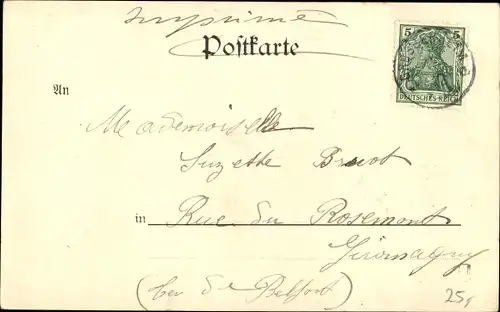 Imprimé
Postkarte
5 5
DEUTSCHES REICH
An
Mademoiselle
Suzette
in Rue du Rosemont
Giromagny
(ter. de Belfort)
25,